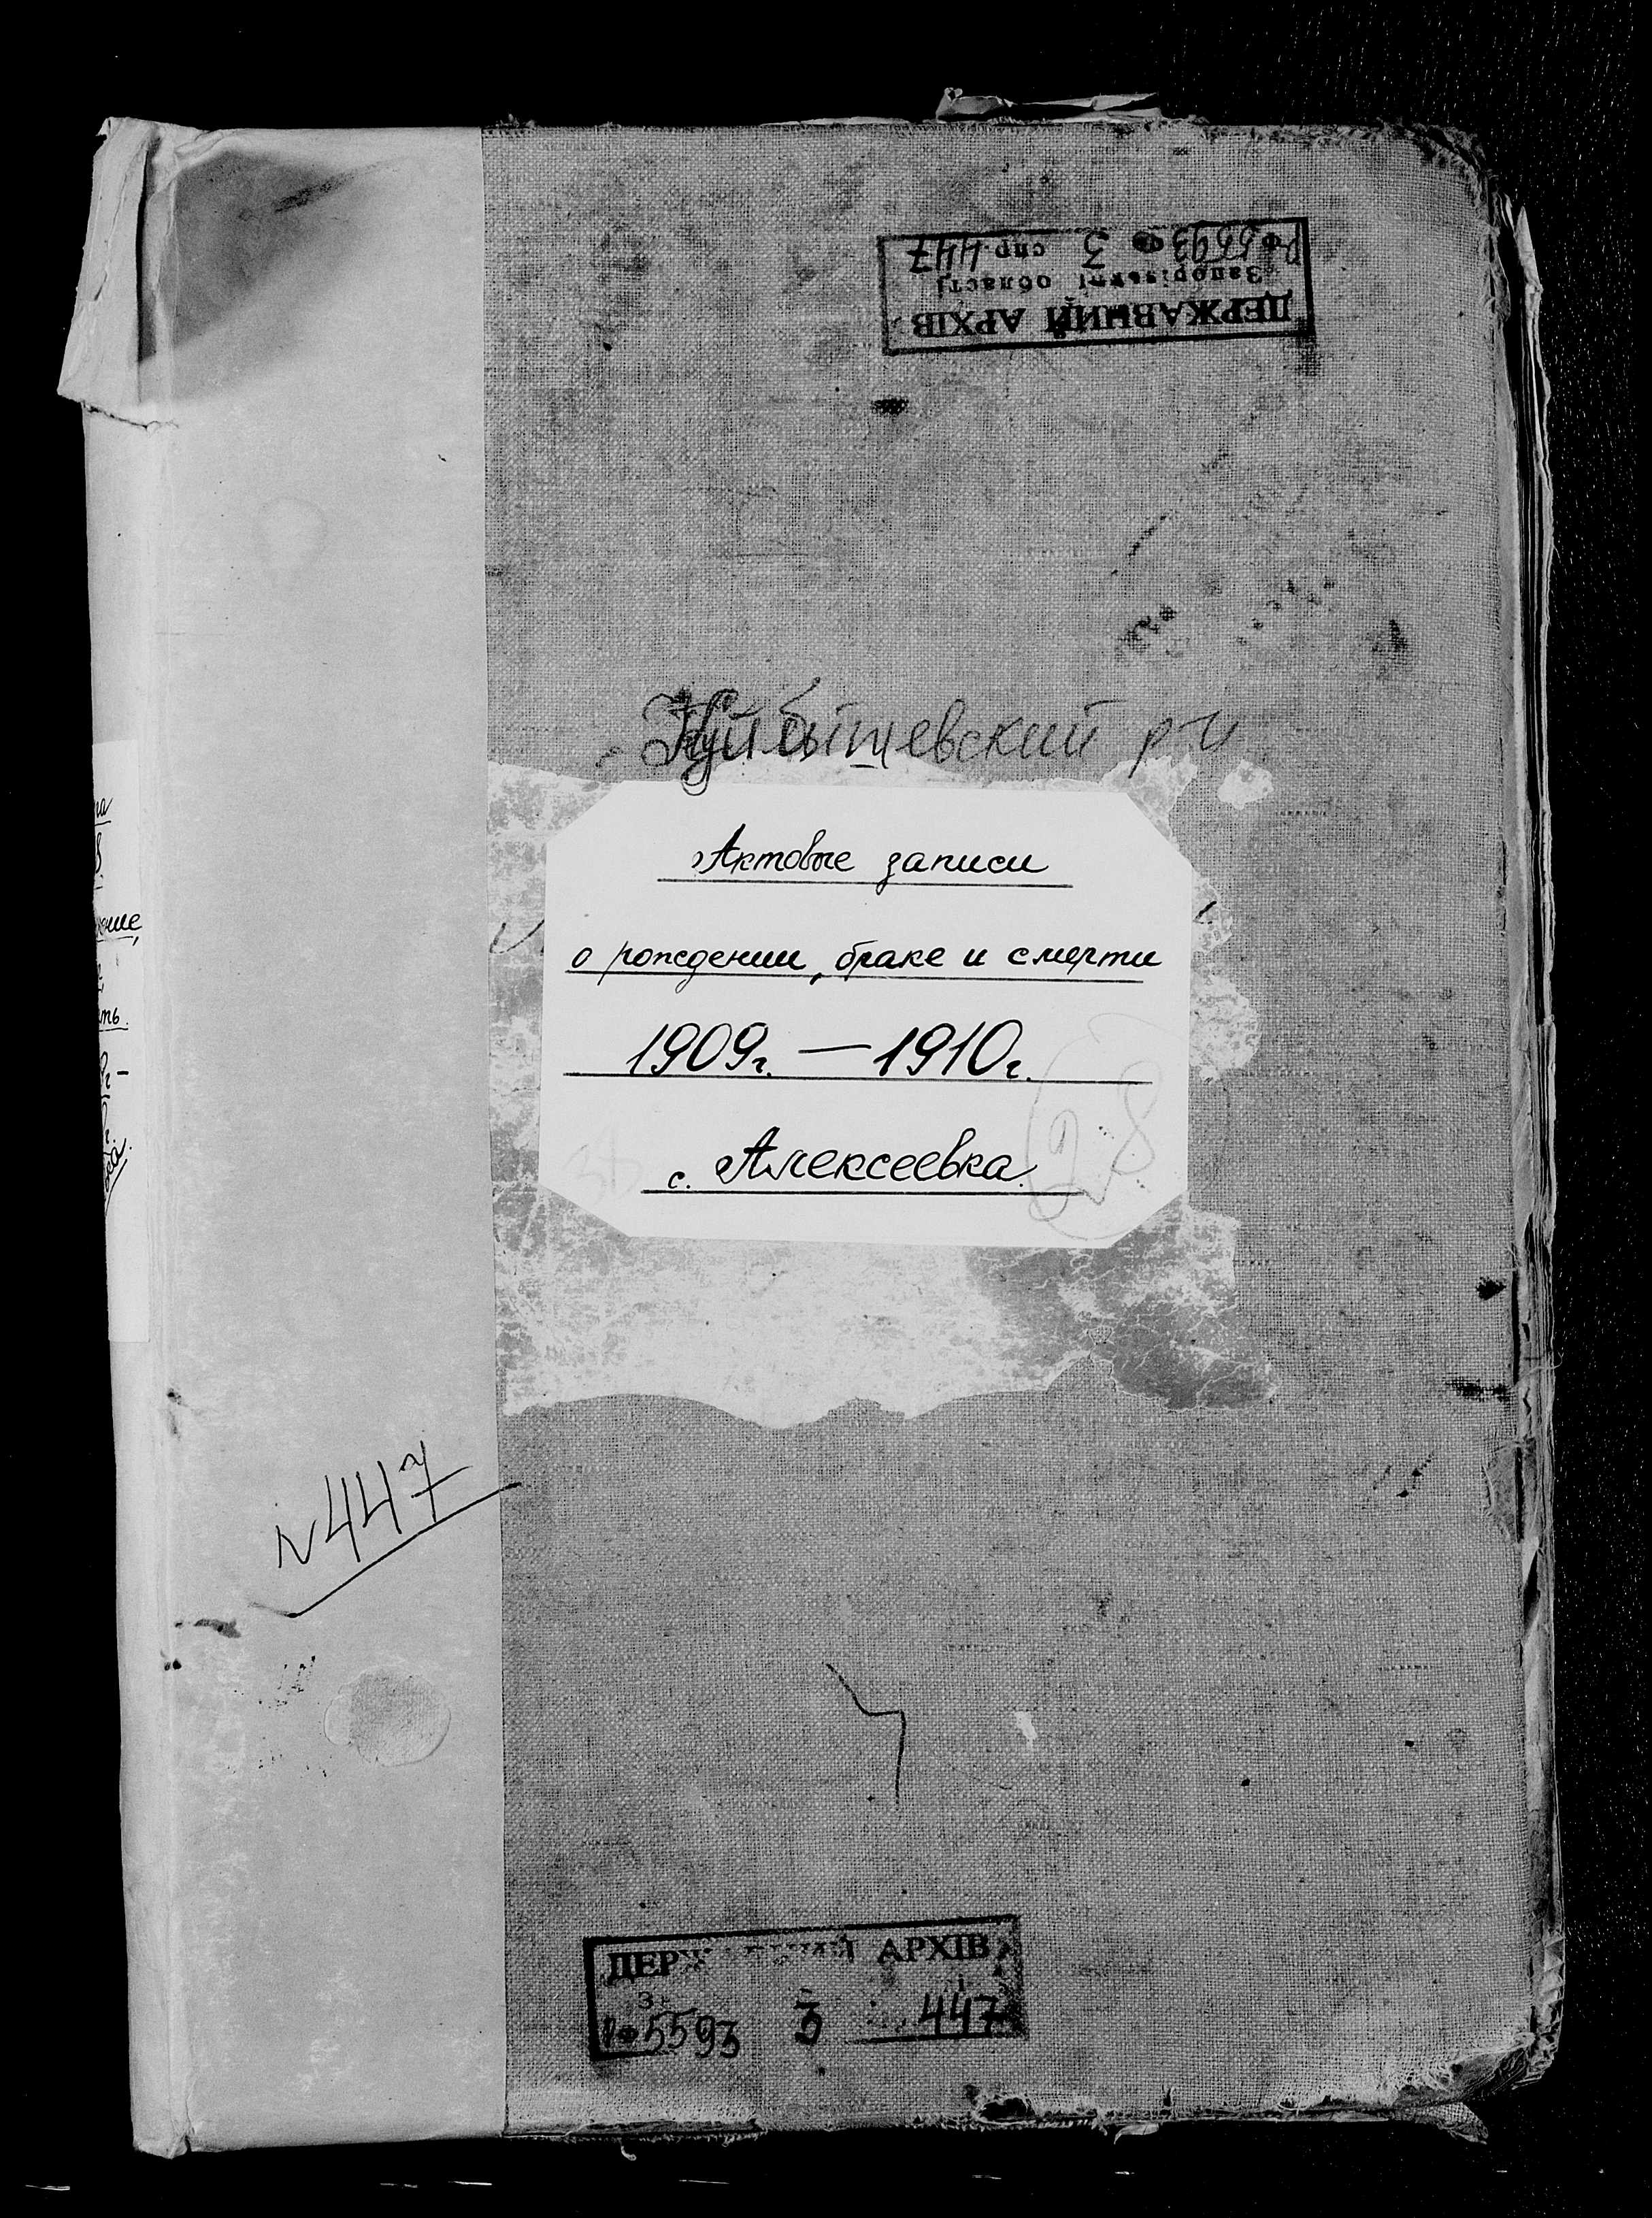 ДЕРЖАВНИЙ АРХІВ
Запорізької області
РФ 5593 3 спр. 447
Куйбышевский р-н
Актовые записи
о рождении, браке и смерти
1909г. — 1910г.
с. Алексеевка.
28
N 447
ДЕРЖАВНИЙ АРХІВ
РФ 5593 3 447